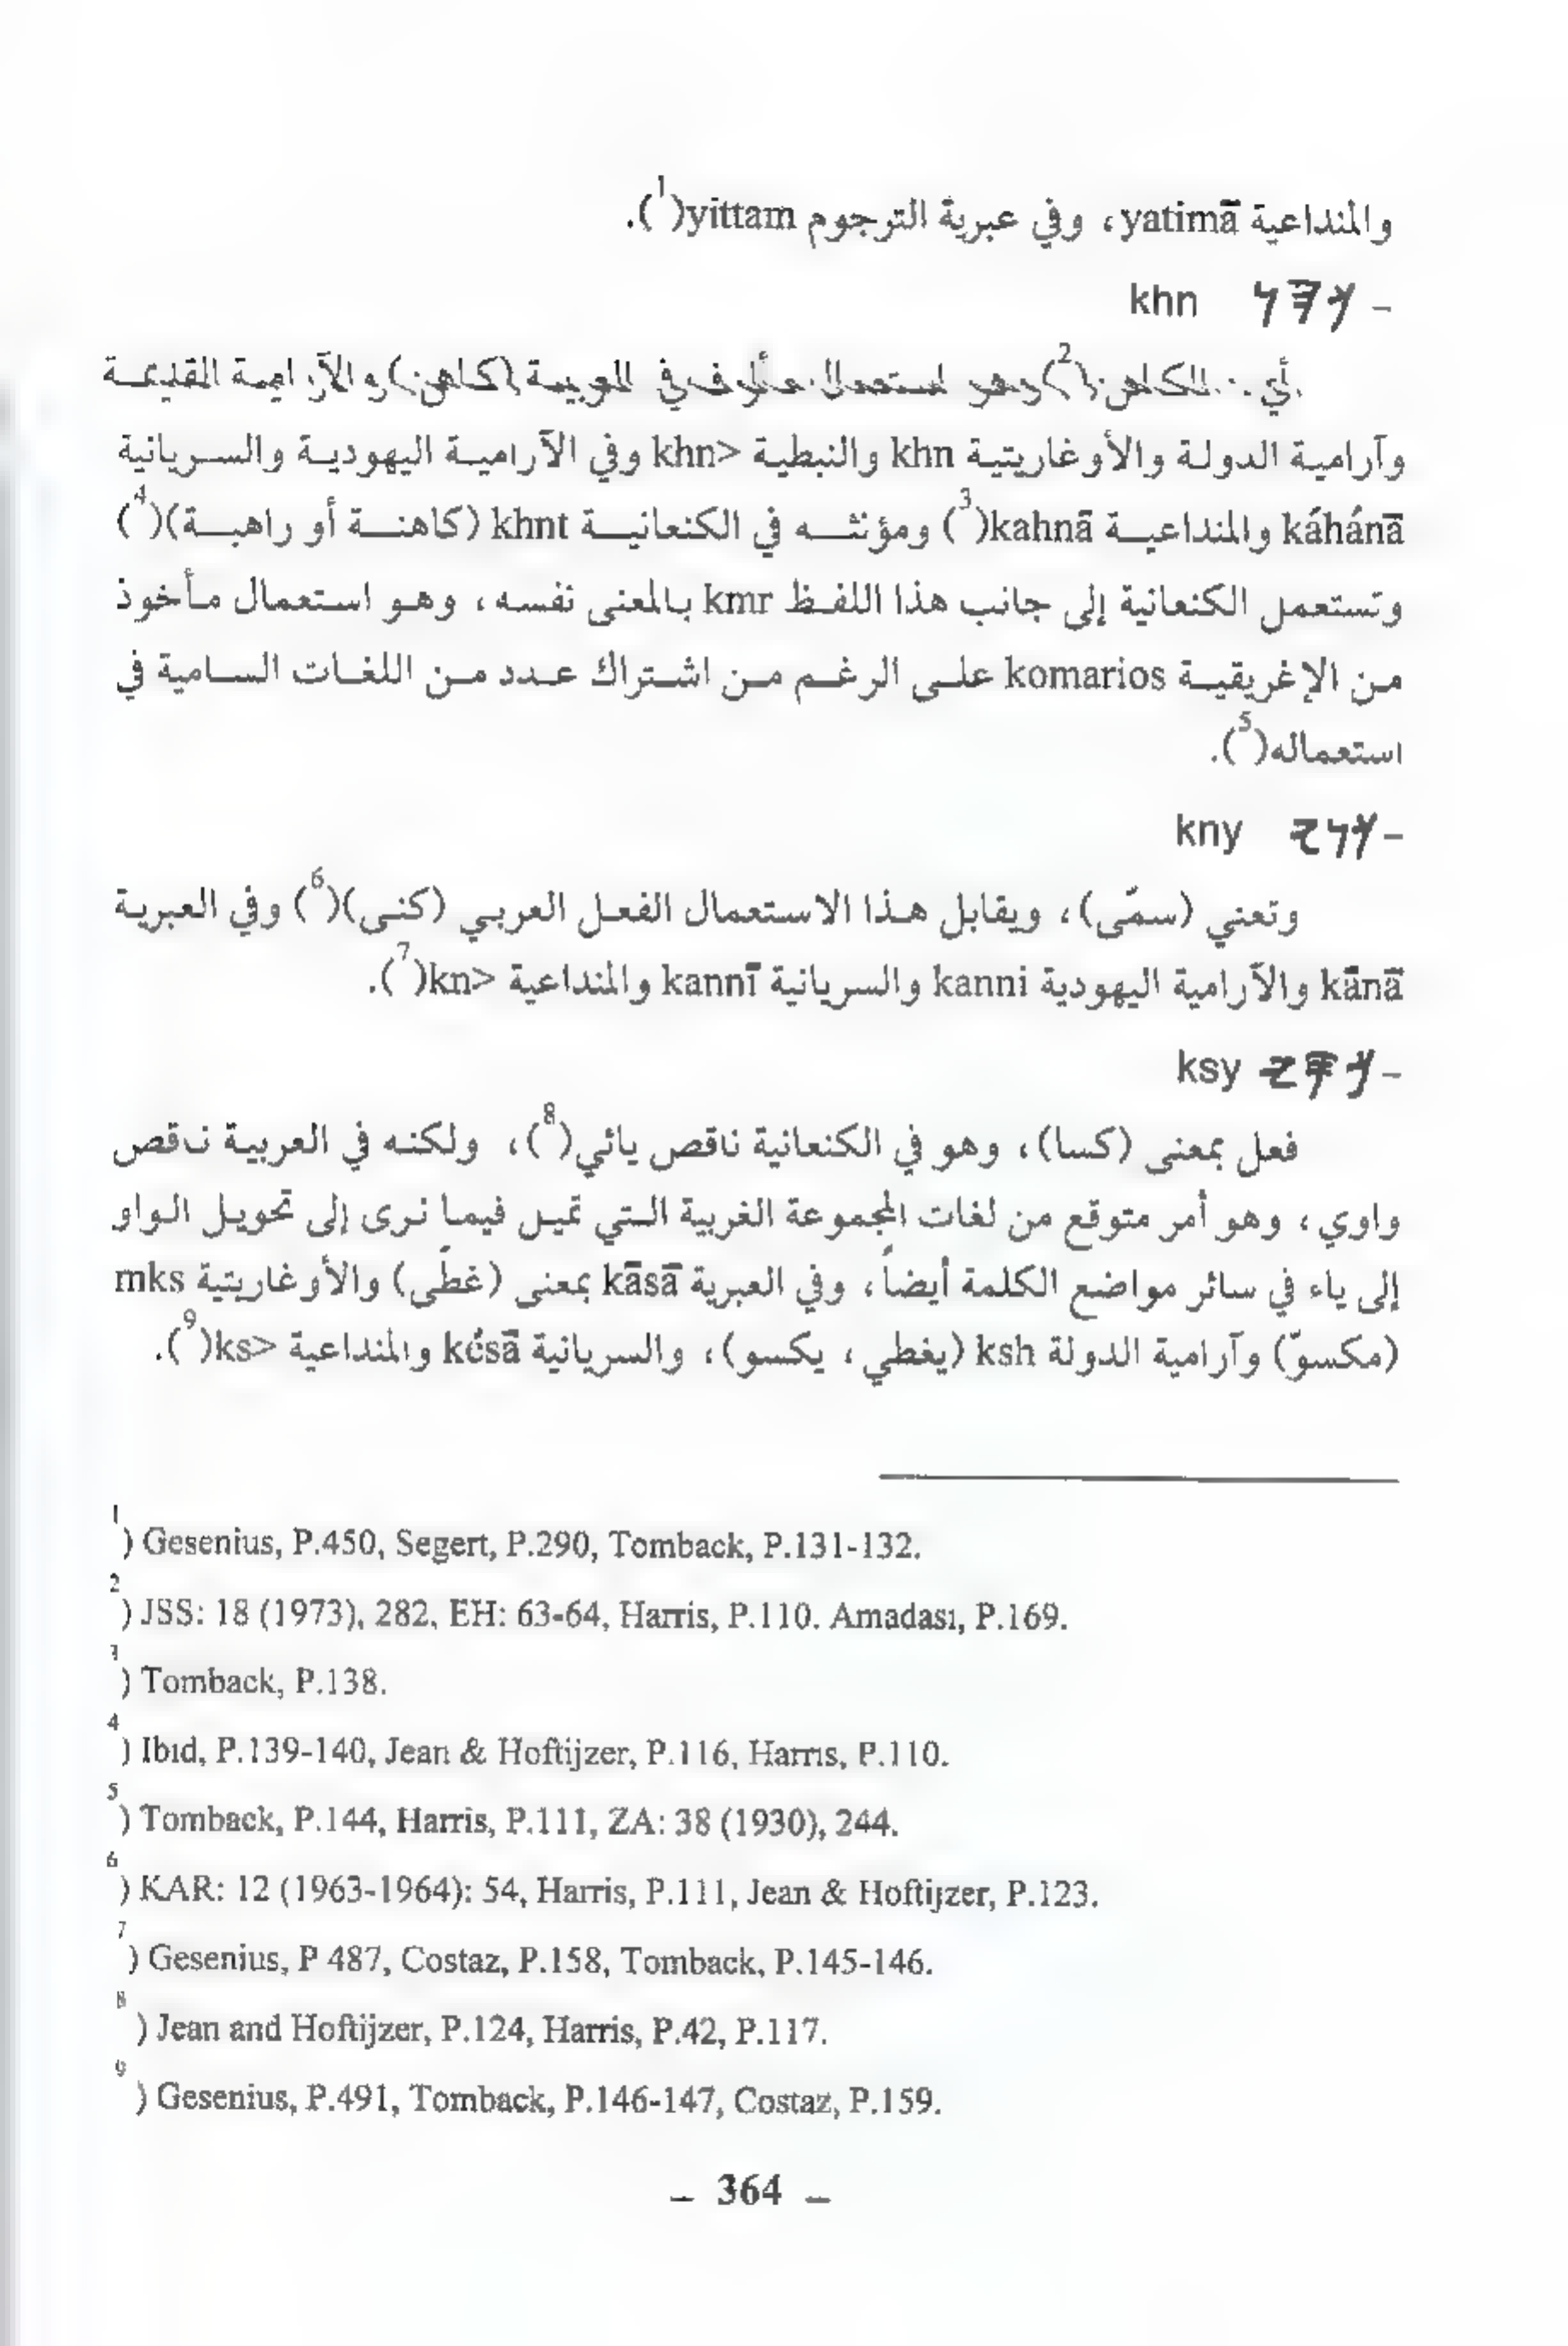 والمنداعية yatimā، وفي عبرية الترجوم yittam(1).
- 𐤊𐤄𐤍 khn
أي: الكاهن(2) وهو استعمال مألوف في العربية (كاهن) والآرامية القديمة
وآرامية الدولة والأوغاريتية khn والنبطية khn> وفي الآرامية اليهودية والسريانية
káhánā والمنداعية kahnā(3) ومؤنثه في الكنعانية khnt (كاهنة أو راهبة)(4)
وتستعمل الكنعانية إلى جانب هذا اللفظ kmr بالمعنى نفسه، وهو استعمال مأخوذ
من الإغريقية komarios على الرغم من اشتراك عدد من اللغات السامية في
استعماله(5).
- 𐤊𐤍𐤉 kny
وتعني (سمّى)، ويقابل هذا الاستعمال الفعل العربي (كنى)(6) وفي العبرية
kānā والآرامية اليهودية kanni والسريانية kannī والمنداعية kn>(7).
- 𐤊𐤎𐤉 ksy
فعل بمعنى (كسا)، وهو في الكنعانية ناقص يائي(8)، ولكنه في العربية ناقص
واوي، وهو أمر متوقع من لغات المجموعة الغربية التي تميل فيما نرى إلى تحويل الواو
إلى ياء في سائر مواضع الكلمة أيضاً، وفي العبرية kāsā بمعنى (غطّى) والأوغاريتية mks
(مكسوّ) وآرامية الدولة ksh (يغطي، يكسو)، والسريانية késā والمنداعية ks>(9).
1) Gesenius, P.450, Segert, P.290, Tomback, P.131-132.
2) JSS: 18 (1973), 282, EH: 63-64, Harris, P.110. Amadası, P.169.
3) Tomback, P.138.
4) Ibıd, P.139-140, Jean & Hoftijzer, P.116, Harris, P.110.
5) Tomback, P.144, Harris, P.111, ZA: 38 (1930), 244.
6) KAR: 12 (1963-1964): 54, Harris, P.111, Jean & Hoftijzer, P.123.
7) Gesenius, P 487, Costaz, P.158, Tomback, P.145-146.
8) Jean and Hoftijzer, P.124, Harris, P.42, P.117.
9) Gesenius, P.491, Tomback, P.146-147, Costaz, P.159.
– 364 –